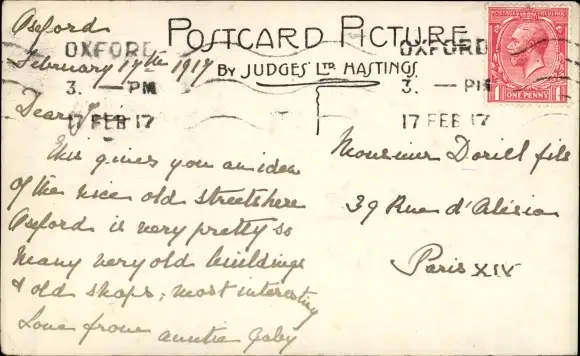 Oxford
February 17th 1917
POSTCARD PICTURE
BY JUDGES' LTD HASTINGS.
OXFORD
3. — PM
17 FEB 17
OXFORD
3. — PM
17 FEB 17
POSTAGE REVENUE
ONE PENNY
1 1
Dear
This gives you an idea
of the nice old streets here
Oxford is very pretty so
many very old buildings
& old shops; most interesting
Love from auntie Gaby
Monsieur Dorill fils
39 Rue d'Alésia
Paris XIV